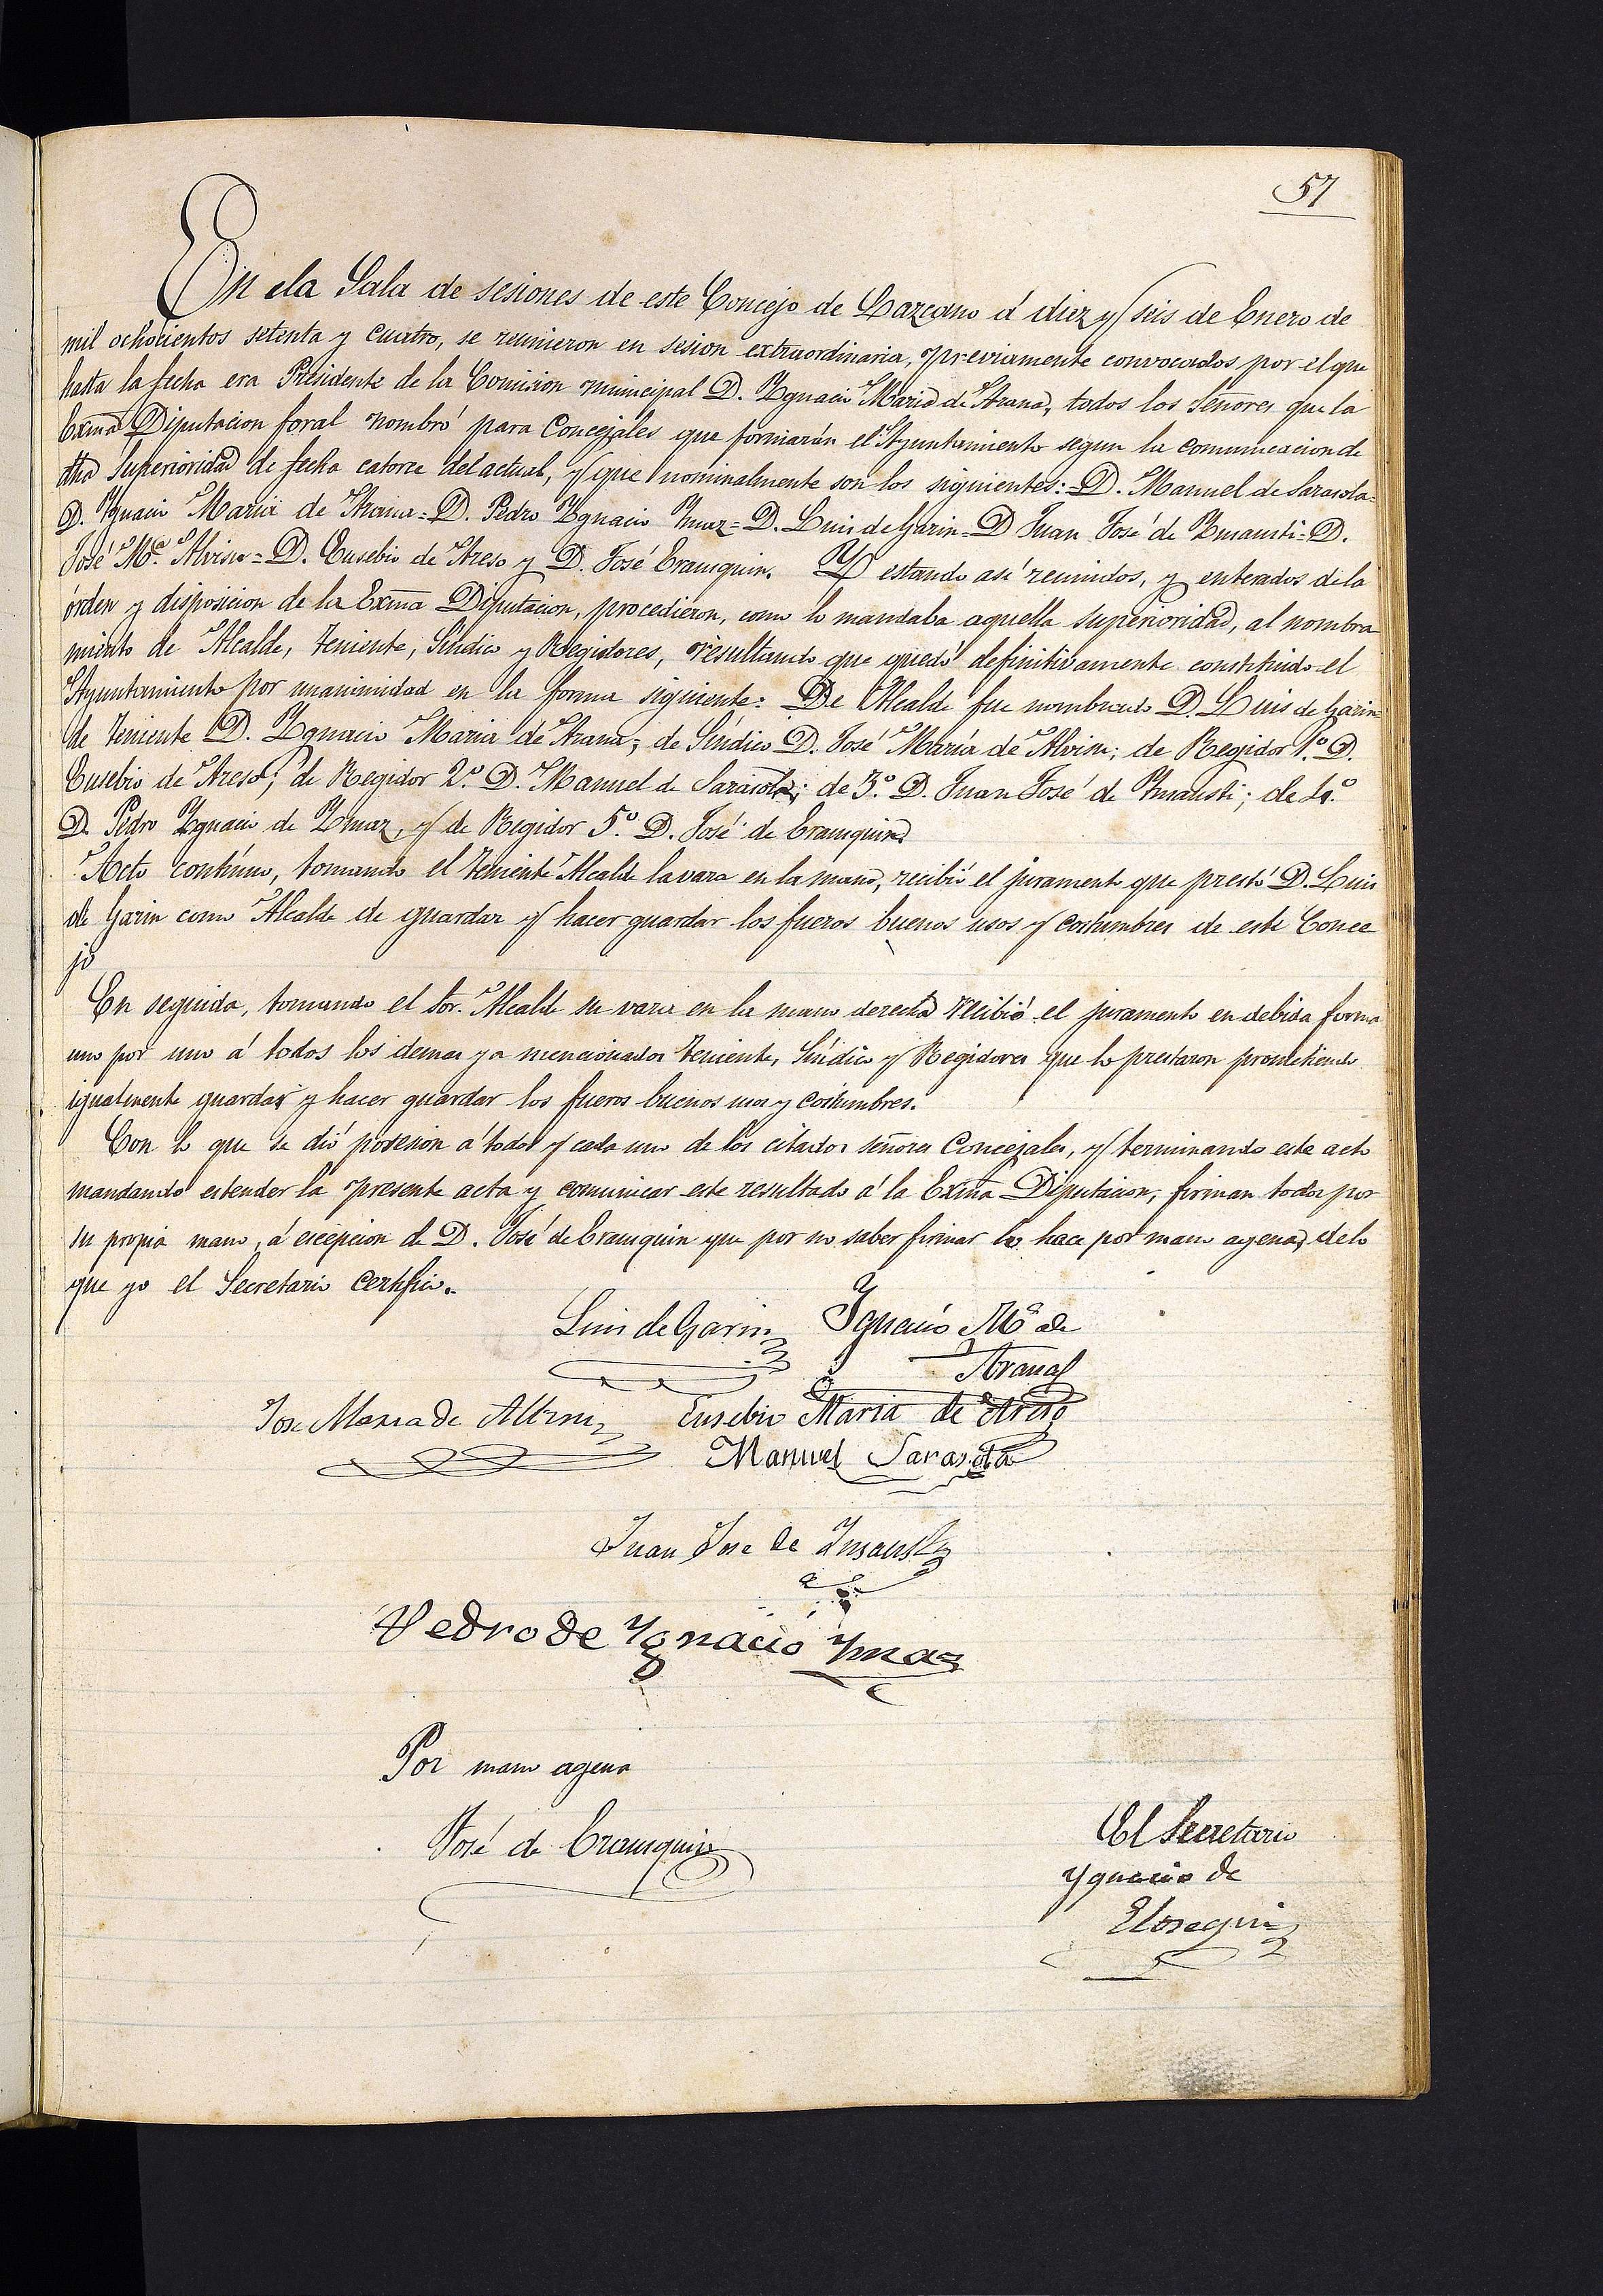 57
En ela Sala de sesiones de este Concejo de Lazcano á diez y seis de Enero de
mil ochocientos setenta y cuatro, se reunieron en sesion extraordinaria, previamente convocados por el que
hasta la fecha era Presidente de la Comision municipal D. Ygnacio Maria de Arana, todos los Señores que la
Exma Diputacion foral nombró para Concejales que formarán el Ayuntamiento segun la comunicacion de
dha Superioridad de fecha catorce del actual, y que nominalmente son los siguientes:= D. Manuel de Sarasola=
D. Ygnacio Maria de Arana= D. Pedro Ygnacio Ymaz= D. Luis de Garin= D Juan José de Ynsausti= D.
José Mª. Alvisu= D. Eusebio de Areso y D. José Erausquin. Y estando asi reunidos, y enterados de la
órden y disposicion de la Exma Diputacion, procedieron, como lo mandaba aquella superioridad, al nombra
miento de Alcalde, teniente, Síndico y Regidores, resultando que quedó definitivamente constituido el
Ayuntamiento por unanimidad en la forma siguiente: De Alcalde fue nombrado D. Luis de Garin
de teniente D. Ygnacio Maria de Arana; de Síndico D. José María de Alvisu; de Regidor 1.º D.
Eusebio de Areso; de Regidor 2.º D. Manuel de Sarasola; de 3.º D. Juan José de Ynsausti; de 4.º
D. Pedro Ygnacio de Ymaz, y de Regidor 5.º D. José de Erausquin
Acto contínuo, tomando el teniente Alcalde la vara en la mano, recibió el juramento que prestó D. Luis
de Garin como Alcalde de guardar y hacer guardar los fueros buenos usos y costumbres de este Conce
jo
En seguida, tomando el Sor. Alcalde su vara en la mano derecha recibió el juramento en debida forma
uno por uno á todos los demas ya mencionados teniente, Síndico y Regidores que lo prestaron prometiendo
igualmente guardar y hacer guardar los fueros buenos usos y costumbres.
Con lo que se dió posesion á todos y cada uno de los citados señores Concejales, y terminando este acto
mandando estender la presente acta y comunicar este resultado á la Exma Diputacion, firman todos por
su propia mano, á escepcion de D. José de Erausquin que por no saber firmar lo hace por mano agena, de lo
que yo el Secretario certifico.
Luis de Garin Ygnacio Mª de
Arana
Jose Maria de Albisu Eusebio Maria de Areso
Manuel Sarasola
Juan Jose de Ynsausti
Pedro de Ygnacio Ymaz
Por mano agena
José de Erausquin
El Secretario
Ygnacio de
Elosegui